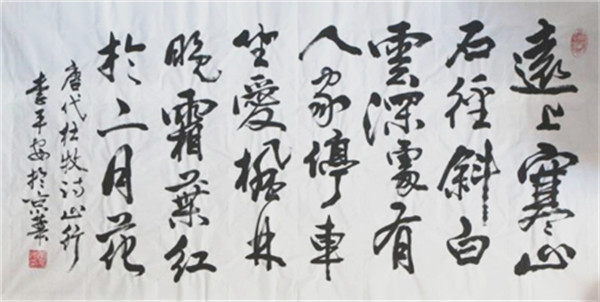 遠上寒山
石徑斜白
雲深處有
人家停車
坐愛楓林
晚霜葉紅
於二月花
唐代杜牧詩山行
李平安於京華